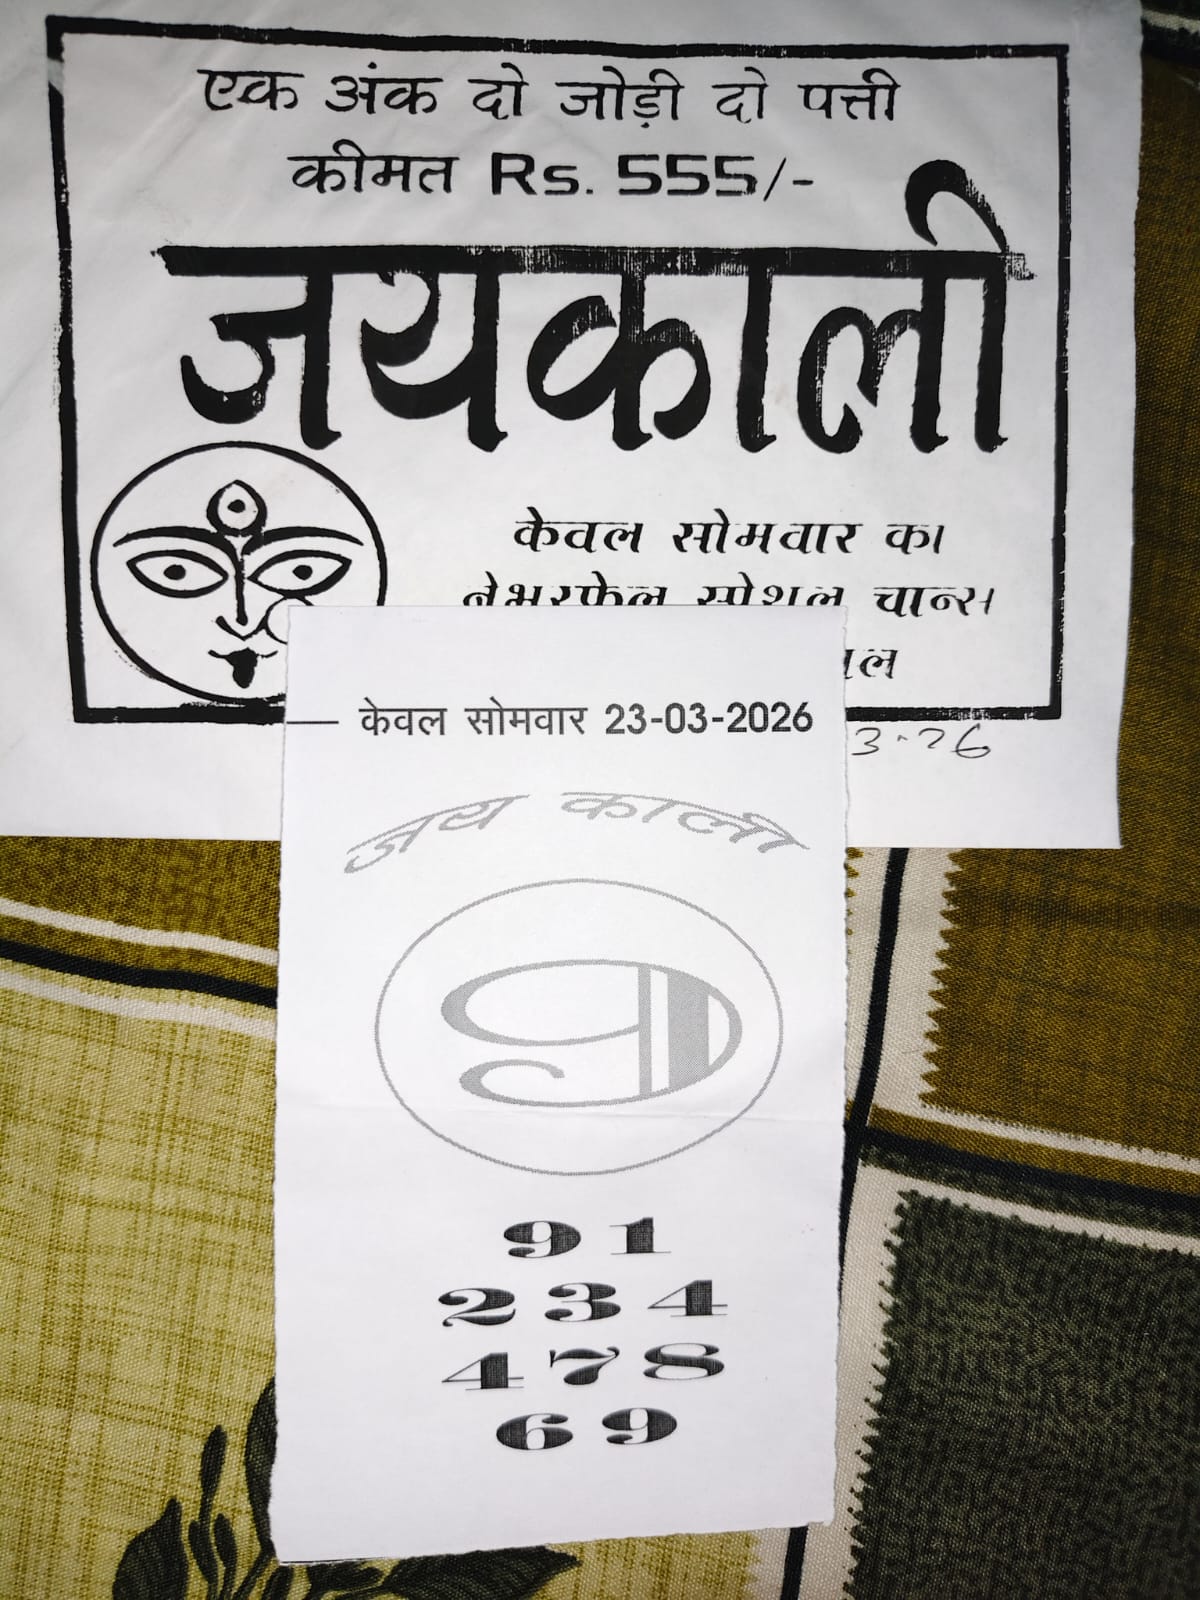 एक अंक दो जोड़ी दो पत्ती
कीमत Rs. 555/-
जयकाली
केवल सोमवार का
नेभरफेल स्पेशल चान्स
केवल सोमवार 23-03-2026
जय काली
9
91
234
478
69